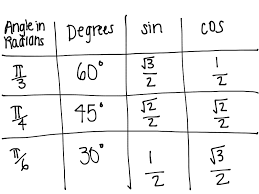 Angle in Radians | Degrees | sin | cos
π/3 | 60° | √3/2 | 1/2
π/4 | 45° | √2/2 | √2/2
π/6 | 30° | 1/2 | √3/2